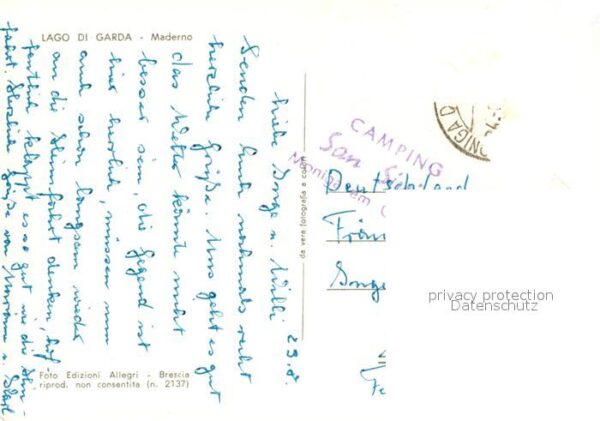 LAGO DI GARDA - Maderno
Liebe Inge u. Willi
23.8.
Senden Euch nochmals recht
herzliche Grüße. Uns geht es gut
das Wetter könnte nicht
besser sein, die Gegend ist
hier herrlich, müssen nun
auch schon langsam wieder
an die Heimfahrt denken, hof-
fentlich klappt es so gut wie die Hin-
fahrt. Herzliche Grüße von
Foto Edizioni Allegri - Brescia
riprod. non consentita (n. 2137)
da vera fotografia a colori
CAMPING
San
Moniga
ONIGA D
Deutschland
Inge
privacy protection
Datenschutz